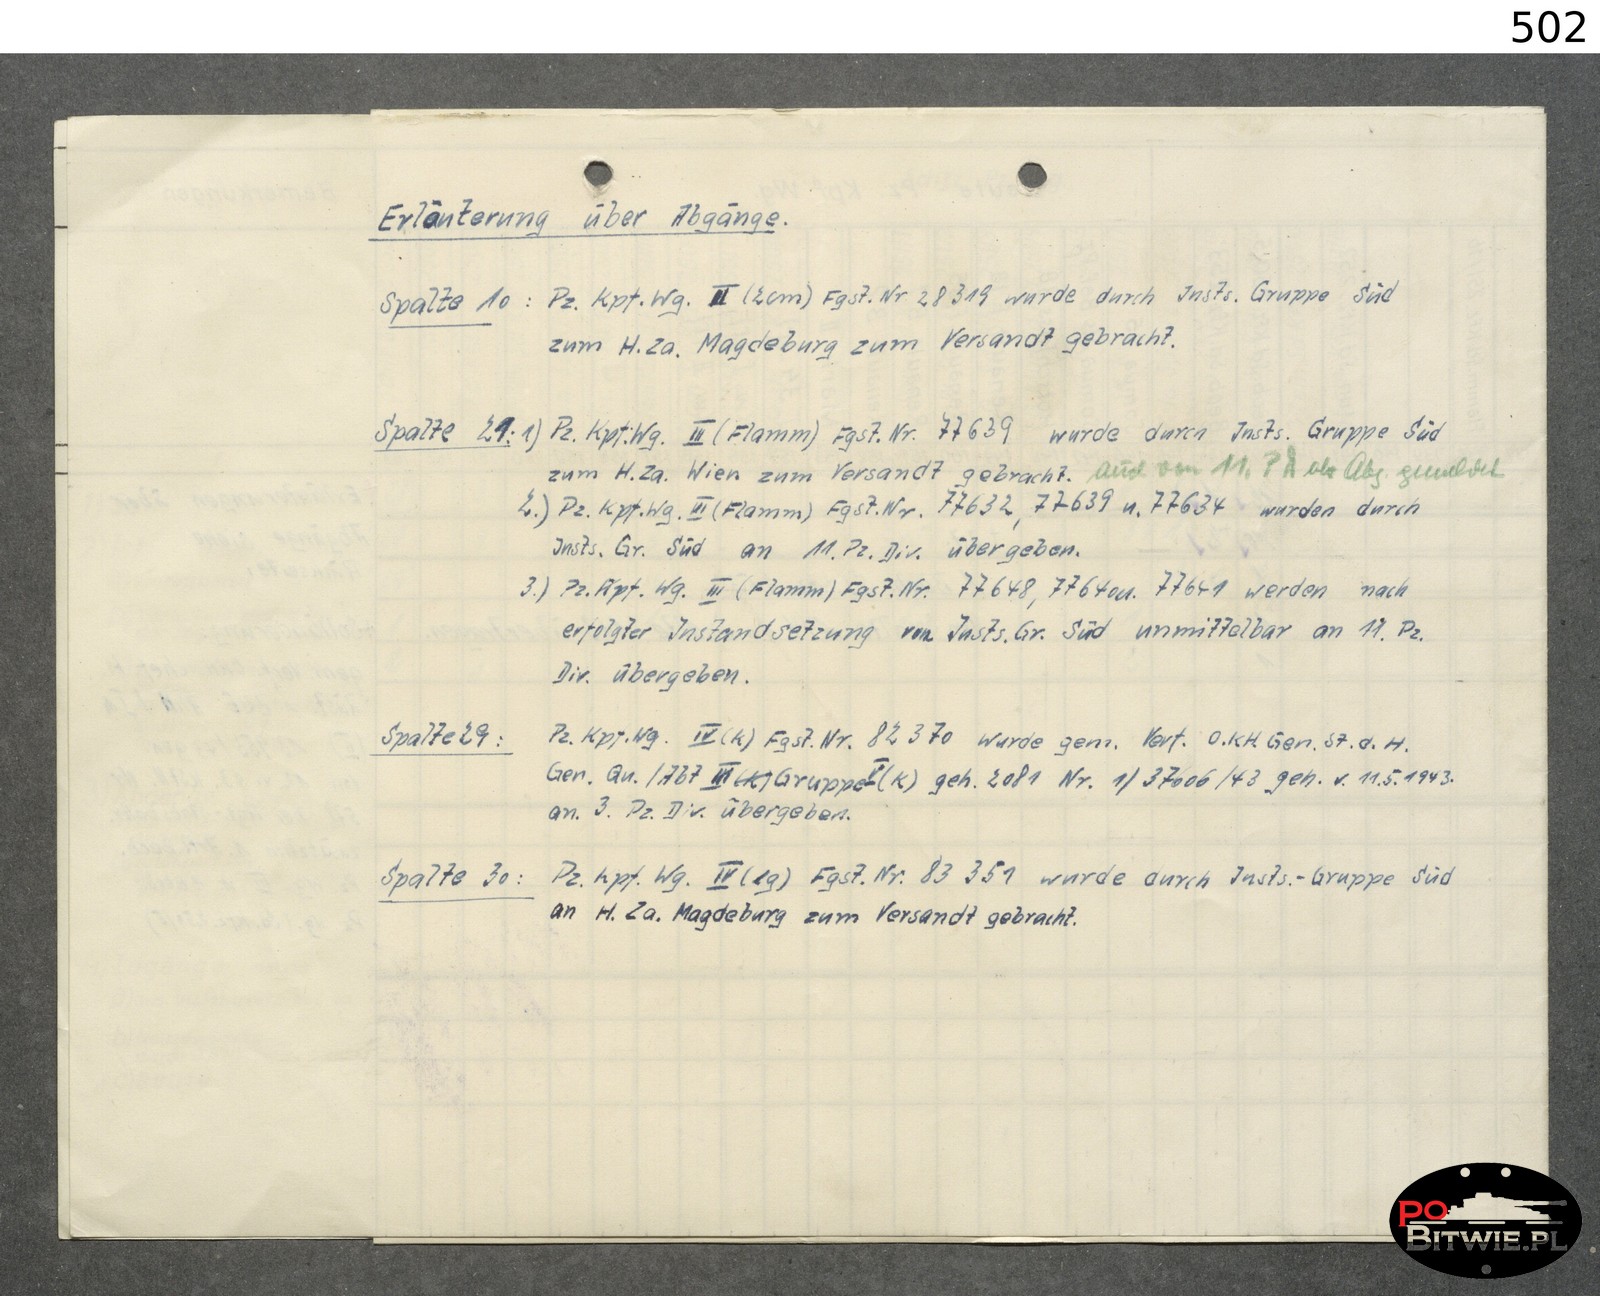 502
Erläuterung über Abgänge.
Spalte 10: Pz. Kpf. Wg. II (2cm) Fgst. Nr 28319 wurde durch Insts. Gruppe Süd
zum H. Za. Magdeburg zum Versandt gebracht.
Spalte 21: 1) Pz. Kpf. Wg. III (Flamm) Fgst. Nr. 77639 wurde durch Insts. Gruppe Süd
zum H. Za. Wien zum Versandt gebracht. auch von 11. P als Abg. gemeldet
2.) Pz. Kpf. Wg. III (Flamm) Fgst. Nr. 77632, 77639 u. 77634 wurden durch
Insts. Gr. Süd an 11. Pz. Div. übergeben.
3.) Pz. Kpf. Wg. III (Flamm) Fgst. Nr. 77648, 77640 u. 77641 werden nach
erfolgter Instandsetzung von Insts. Gr. Süd unmittelbar an 11. Pz.
Div. übergeben.
Spalte 29: Pz. Kpf. Wg. IV (k) Fgst. Nr. 82370 wurde gem. Verf. O.KH Gen. St. d. H.
Gen. Qu. / Abt III Gruppe V (K) geh. 2081 Nr. 1/37606/43 geh. v. 11.5.1943.
an 3. Pz. Div. übergeben.
Spalte 30: Pz. Kpf. Wg. IV (lg) Fgst. Nr. 83 351 wurde durch Insts.-Gruppe Süd
an H. Za. Magdeburg zum Versandt gebracht.
PO
BITWIE.PL